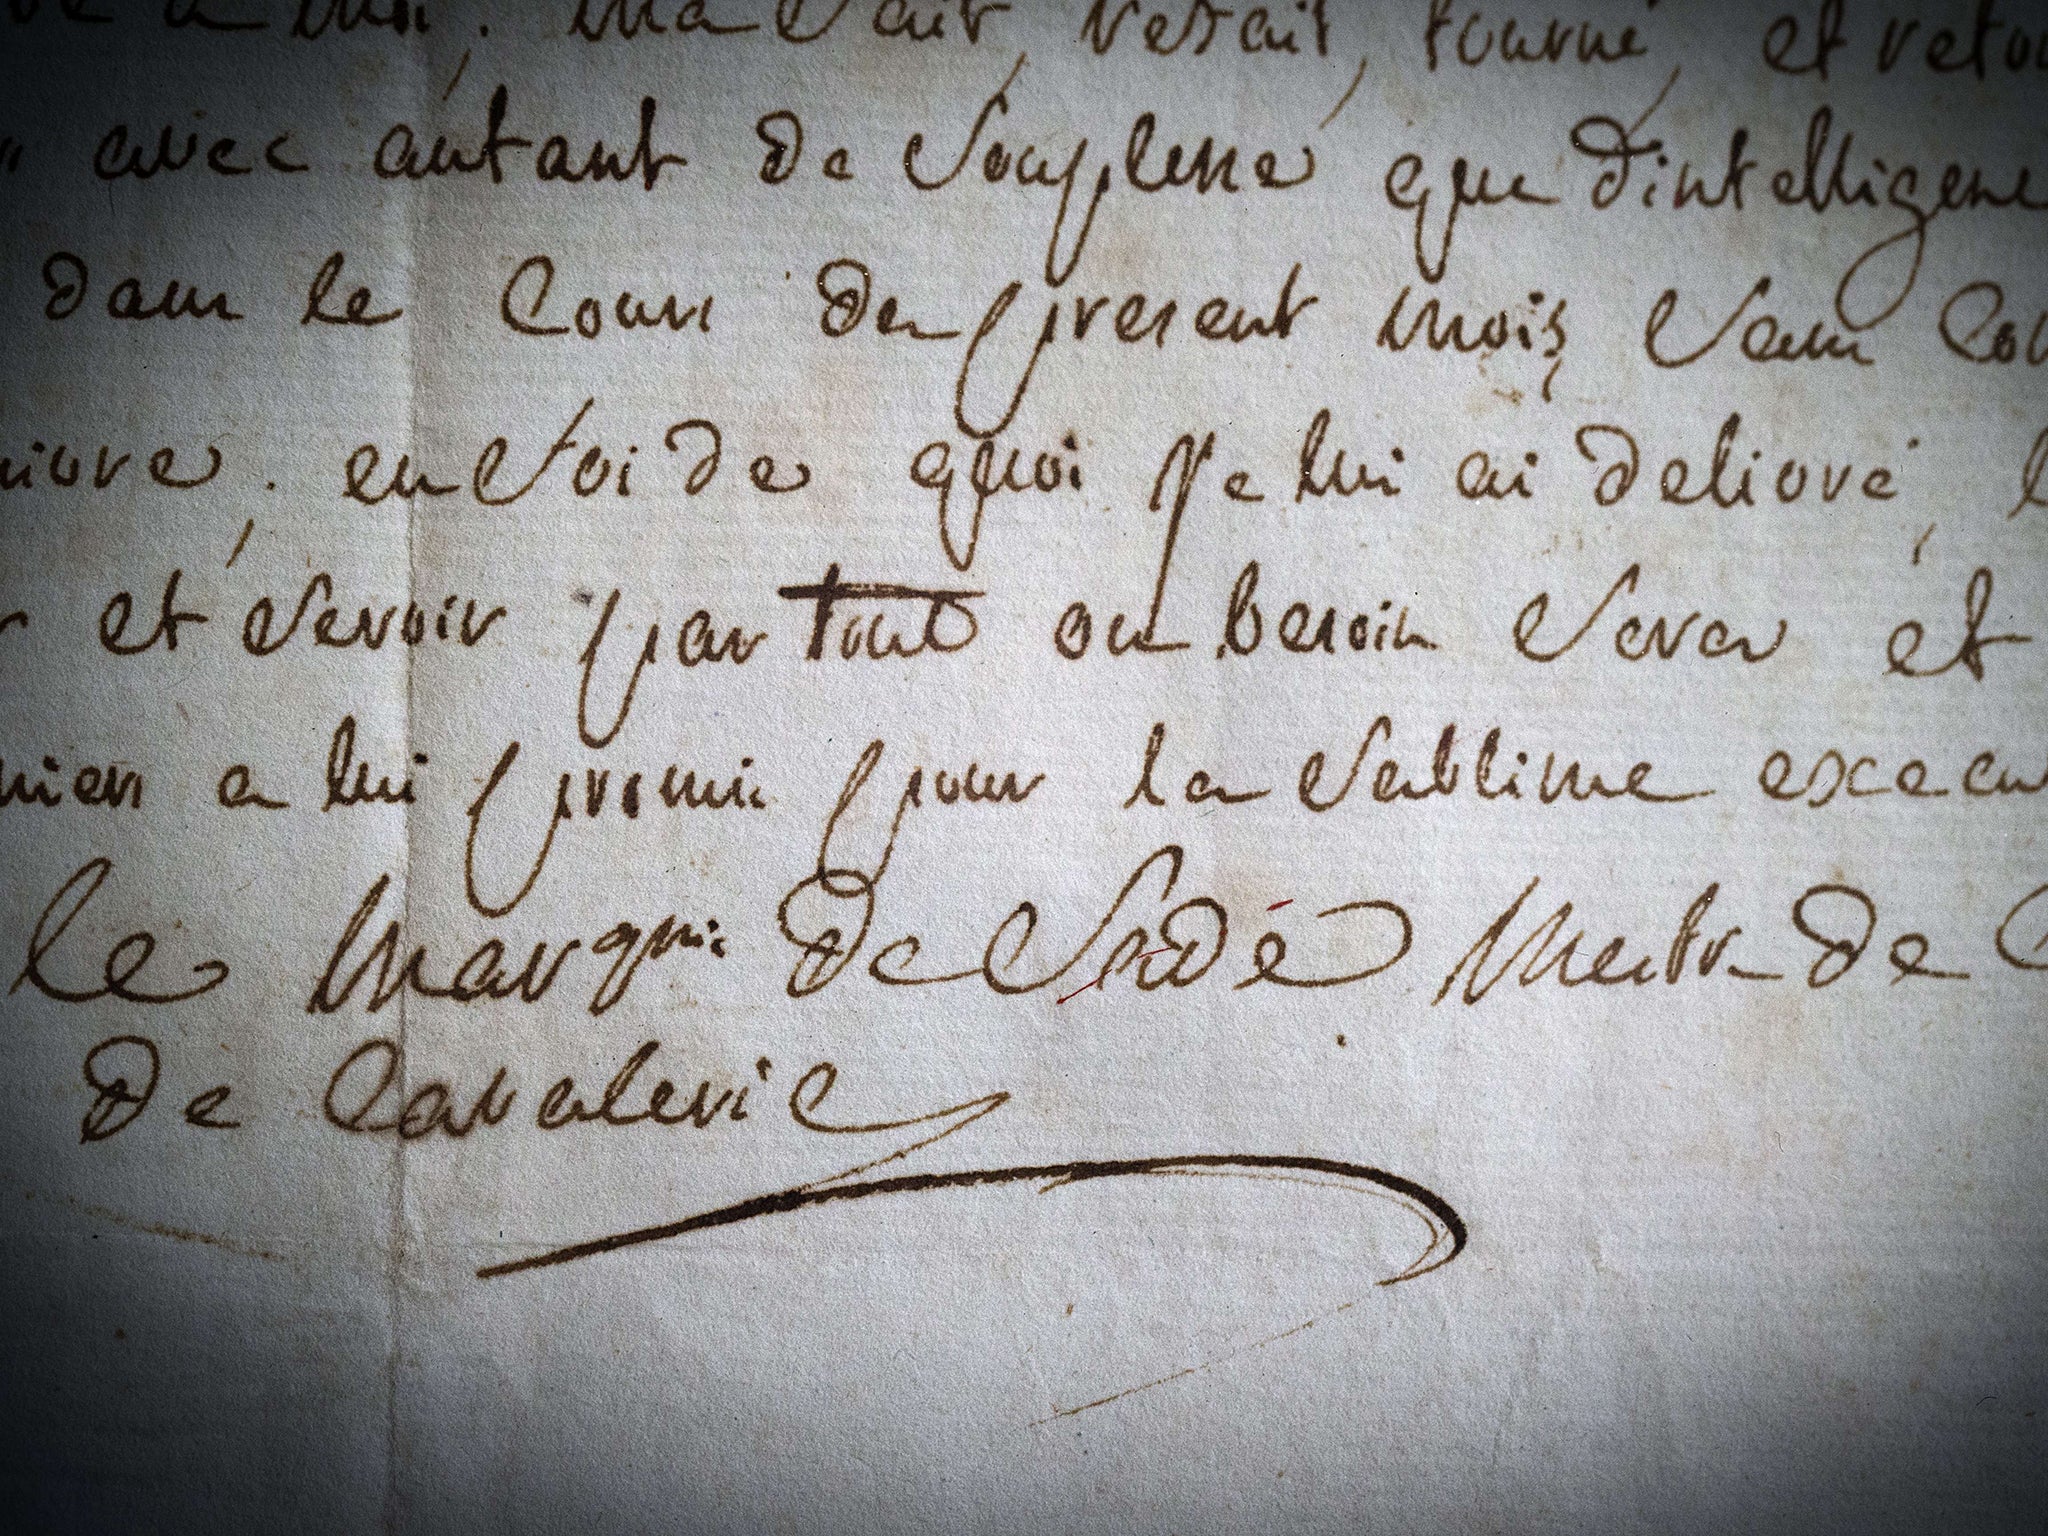 a moi, m'a fait, refait, tourné, et retou
" avec autant de souplesse que d'intelligence
dans le cours du present mois sans
en foi de quoi je lui ai delivré, l
et servoir partout ou besoin sera et
a lui promis pour la sublime execu
le Marquis de Sade Mestre de C
de Cavalerie